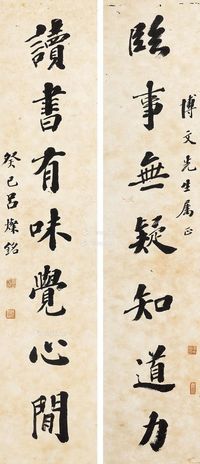 博文先生属正
臨事無疑知道力
讀書有味覺心閒
癸巳呂燦銘